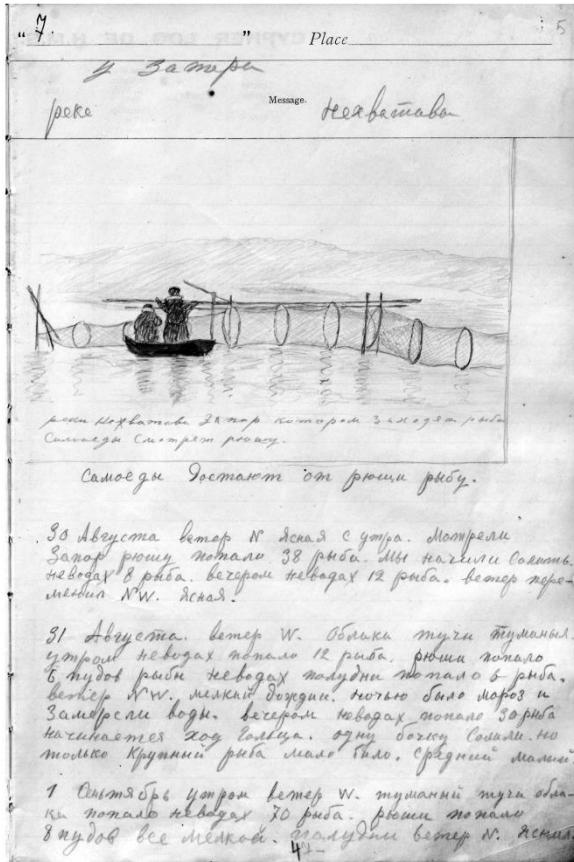 "7 " Place 5
у запера
Message.
реке Нехватава
реки Нохватова Запор котором заходят рыба
Самоеды Смотрят рюшу.
Самоеды Достают от рюши рыбу.
30 Августа ветер N ясная с утра. Мотрели
Запор рюшу попало 38 рыба. Мы начили Солить.
неводах 8 рыба. вечером неводах 12 рыба. ветер пере-
менил NW. ясная.
31 Августа. ветер W. Облака тучи туманыя.
утром неводах попало 12 рыба. рюши попало
6 пудов рыбы неводах полудни попало 6 рыба.
ветер NW. мелкий дождик. ночью было мороз и
Замерсли воды. вечером неводах попало 30 рыба
начинается ход Гольца. одну бочку Солили. но
только Крупный рыба мало было. средний малый
1 Сентябрь утром ветер W. туманый тучи обла-
ки попало неводах 70 рыба. рюши попало
8 пудов все мелкой. полудни ветер N. ясная.
4